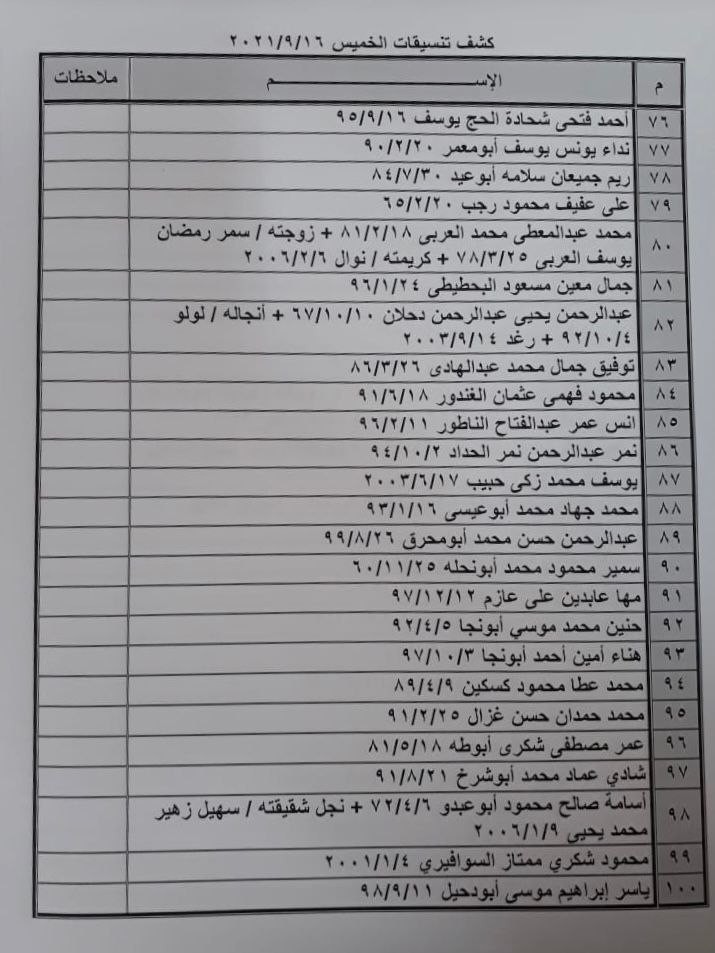 كشف تنسيقات الخميس ٢٠٢١/٩/١٦
م الإســـــــــم ملاحظات
٧٦ أحمد فتحى شحادة الحج يوسف ٩٥/٩/١٦
٧٧ نداء يونس يوسف أبومعمر ٩٠/٢/٢٠
٧٨ ريم جميعان سلامه أبوعيد ٨٤/٧/٣٠
٧٩ على عفيف محمود رجب ٦٥/٢/٢٠
٨٠ محمد عبدالمعطى محمد العربى ٨١/٢/١٨ + زوجته / سمر رمضان
يوسف العربى ٧٨/٣/٢٥ + كريمته / نوال ٢٠٠٦/٢/٦
٨١ جمال معين مسعود البحطيطى ٩٦/١/٢٤
٨٢ عبدالرحمن يحيى عبدالرحمن دحلان ٦٧/١٠/١٠ + أنجاله / لولو
٩٢/١٠/٤ + رغد ٢٠٠٣/٩/١٤
٨٣ توفيق جمال محمد عبدالهادى ٨٦/٣/٢٦
٨٤ محمود فهمى عثمان الغندور ٩١/٦/١٨
٨٥ انس عمر عبدالفتاح الناطور ٩٦/٢/١١
٨٦ نمر عبدالرحمن نمر الحداد ٩٤/١٠/٢
٨٧ يوسف محمد زكى حبيب ٢٠٠٣/٦/١٧
٨٨ محمد جهاد محمد أبوعيسى ٩٣/١/١٦
٨٩ عبدالرحمن حسن محمد أبومحرق ٩٩/٨/٢٦
٩٠ سمير محمود محمد أبونحله ٦٠/١١/٢٥
٩١ مها عابدين على عازم ٩٧/١٢/١٢
٩٢ حنين محمد موسي أبونجا ٩٢/٤/٥
٩٣ هناء أمين أحمد أبونجا ٩٧/١٠/٣
٩٤ محمد عطا محمود كسكين ٨٩/٤/٩
٩٥ محمد حمدان حسن غزال ٩١/٢/٢٥
٩٦ عمر مصطفى شكرى أبوطه ٨١/٥/١٨
٩٧ شادي عماد محمد أبوشرخ ٩١/٨/٢١
٩٨ أسامة صالح محمود أبوعبدو ٧٢/٤/٦ + نجل شقيقته / سهيل زهير
محمد يحيى ٢٠٠٦/١/٩
٩٩ محمود شكري ممتاز السوافيري ٢٠٠١/١/٤
١٠٠ ياسر إبراهيم موسى أبودحيل ٩٨/٩/١١